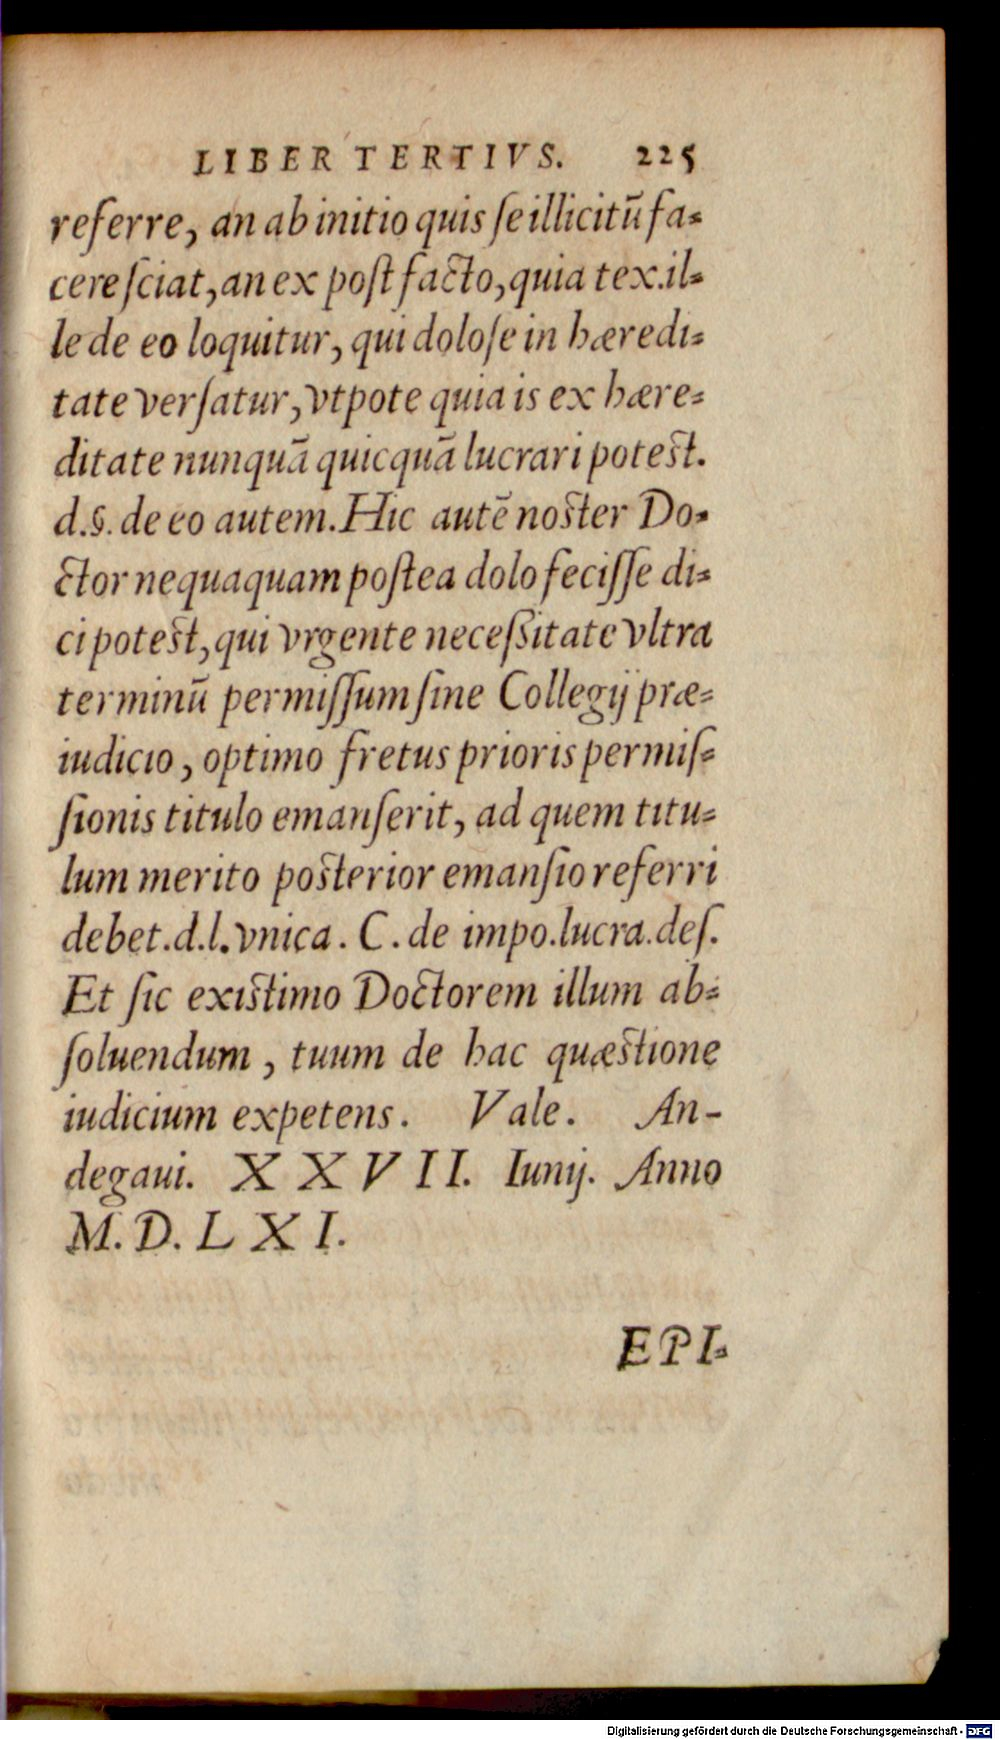 LIBER TERTIVS. 225
referre, an ab initio quis ſe illicitū fa-
cere ſciat, an ex poſt facto, quia tex. il-
le de eo loquitur, qui doloſe in hæredi-
tate verſatur, vtpote quia is ex hære-
ditate nunquā quicquā lucrari poteſt.
d.§. de eo autem. Hic autē noſter Do-
ctor nequaquam poſtea dolo feciſſe di-
ci poteſt, qui vrgente neceßitate vltra
terminū permiſſum ſine Collegij præ-
iudicio, optimo fretus prioris permiſ-
ſionis titulo emanſerit, ad quem titu-
lum merito poſterior emanſio referri
debet. d.l. vnica. C. de impo. lucra. deſ.
Et ſic exiſtimo Doctorem illum ab-
ſoluendum, tuum de hac quæſtione
iudicium expetens. Vale. An-
degaui. XXVII. Iunij. Anno
M.D.LXI.
EPI-
Digitalisierung gefördert durch die Deutsche Forschungsgemeinschaft - DFG